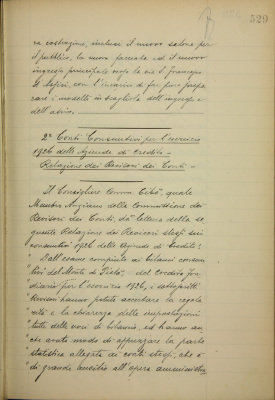 529
va costruzione, inclusi il nuovo salone per
il pubblico, la nuova facciata ed il nuovo
ingresso principale verso la via S. Francesco
d'Assisi, con l'incarico di far pure prepa
rare i modelli in scagliola dell'ingresso e
dell'atrio.
2° Conti Consuntivi per l'esercizio
1926 delle Aziende di Credito -
Relazione dei Revisori dei Conti -
Il Consigliere Comm. Cibò, quale
Membro Anziano della Commissione dei
Revisori dei Conti, dà lettura della se
guente Relazione dei Revisori stessi sui
consuntivi 1926 delle Aziende di Credito:
" Dall'esame compiuto ai bilanci consun
" tivi del Monte di Pietà, del Credito Fon
" diario per l'esercizio 1926, i sottoscritti
" Revisori hanno potuto accertare la regola
" rità e la chiarezza delle impostazioni
" tutte delle voci di bilancio, ed hanno an
" che avuto modo di apprezzare la parte
" statistica allegata ai conti stessi, che è
" di grande ausilio all'opera amministra